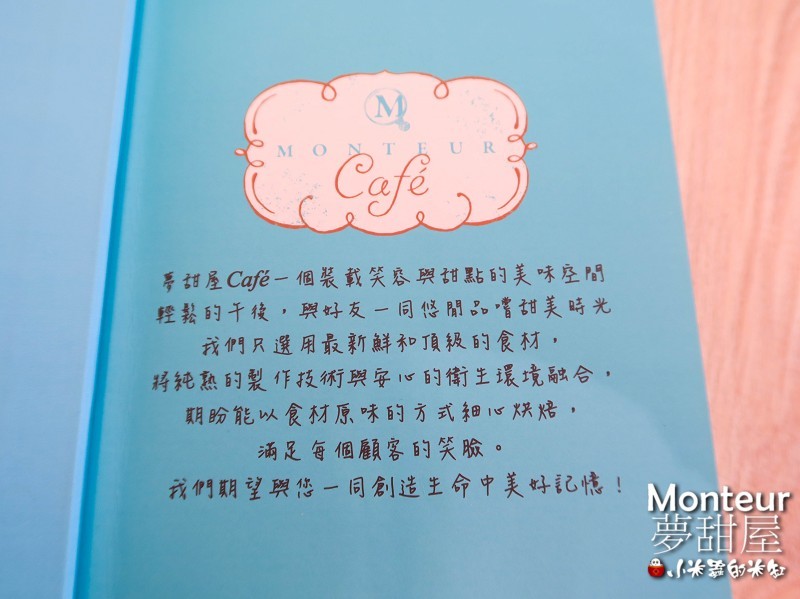 M
MONTEUR
Café
夢甜屋Café一個裝載笑容與甜點的美味空間
輕鬆的午後，與好友一同悠閒品嚐甜美時光
我們只選用最新鮮和頂級的食材，
將純熟的製作技術與安心的衛生環境融合，
期盼能以食材原味的方式細心烘焙，
滿足每個顧客的笑臉。
我們期望與您一同創造生命中美好記憶！
Monteur
夢甜屋
小米蟲的米缸